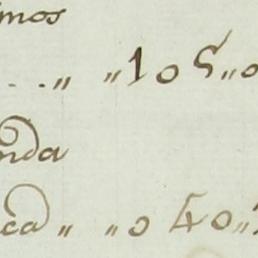 mos
... „ „105„0
nda
ca „ „040„